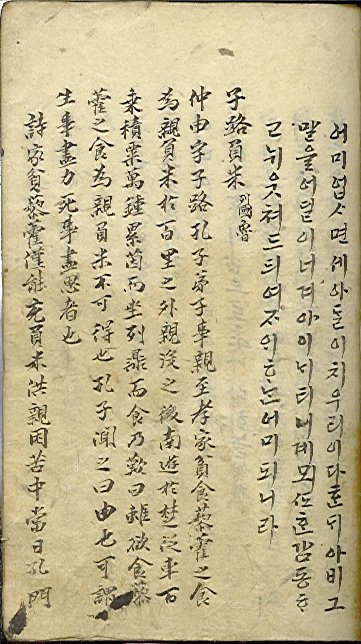 어미업스면세아ᄃᆞᆯ이치우리이다ᄒᆞᆫ대아비그
말을어딜이너겨아이니티니계모ᄯᅩᄒᆞᆫ감동ᄒᆞ
고뉘웃쳐드듸여ᄌᆞ이ᄒᆞᄂᆞᆫ어미되니라
子路負米 列國魯
仲由字子路孔子弟子事親至孝家貧食藜藿之食
為親負米於百里之外親沒之後南遊於楚從車百
乘積粟萬鍾累茵而坐列鼎而食乃歎曰雖欲食藜
藿之食為親負米不可得也孔子聞之曰由也可謂
生事盡力死事盡思者也
詩家貧藜藿僅能充負米供親困苦中當日孔門